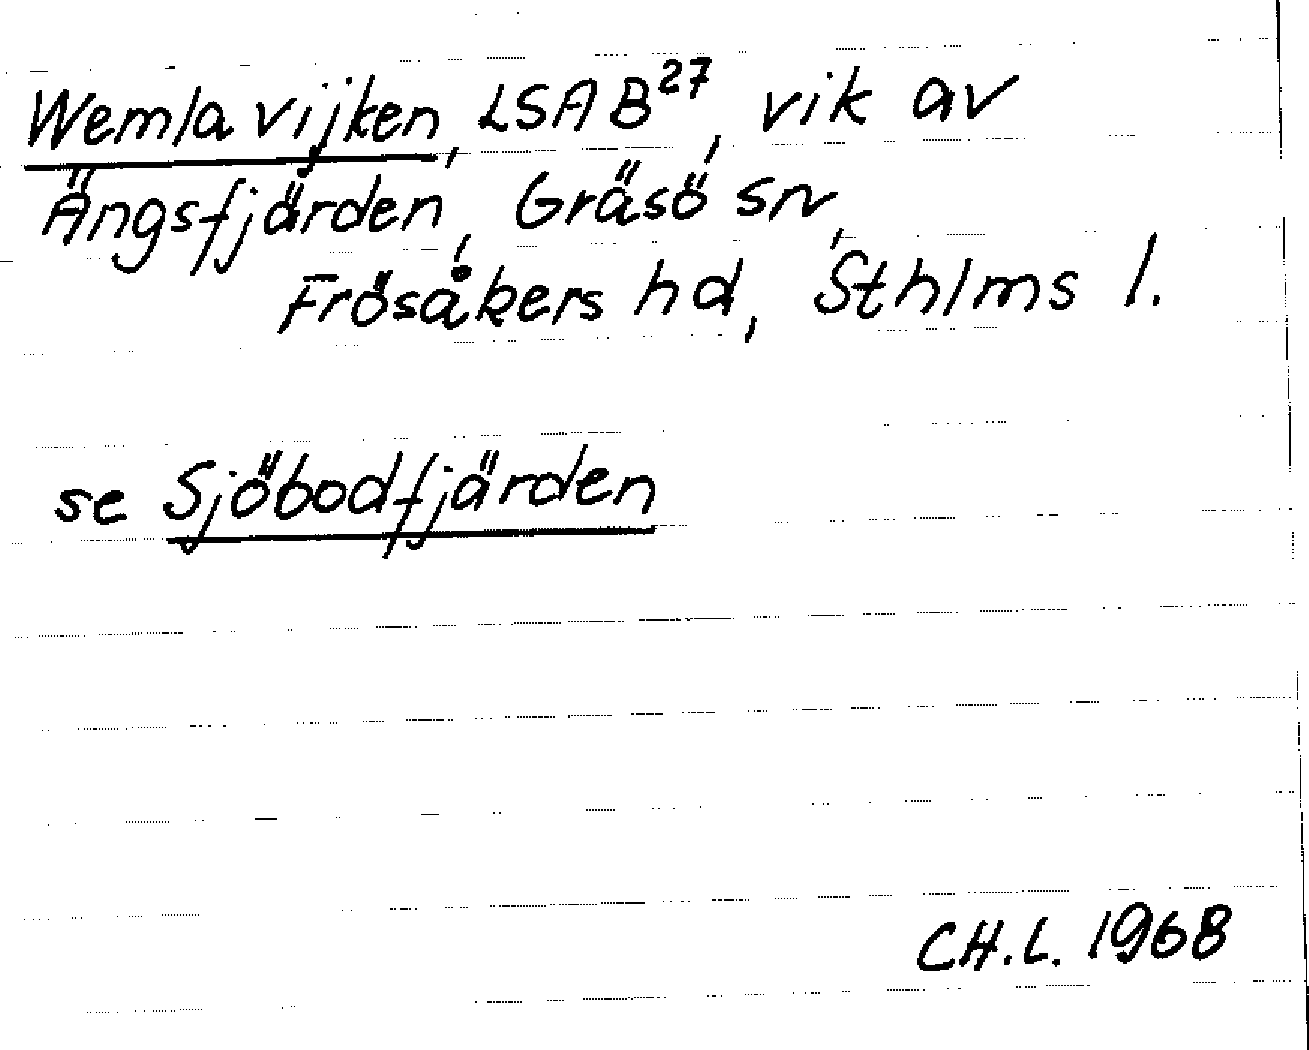 Wemla vijken, LSA B²⁷, vik av
Ängsfjärden, Gräsö sn,
Frösåkers hd, Sthlms l.
se Sjöbodfjärden
CH.L. 1968